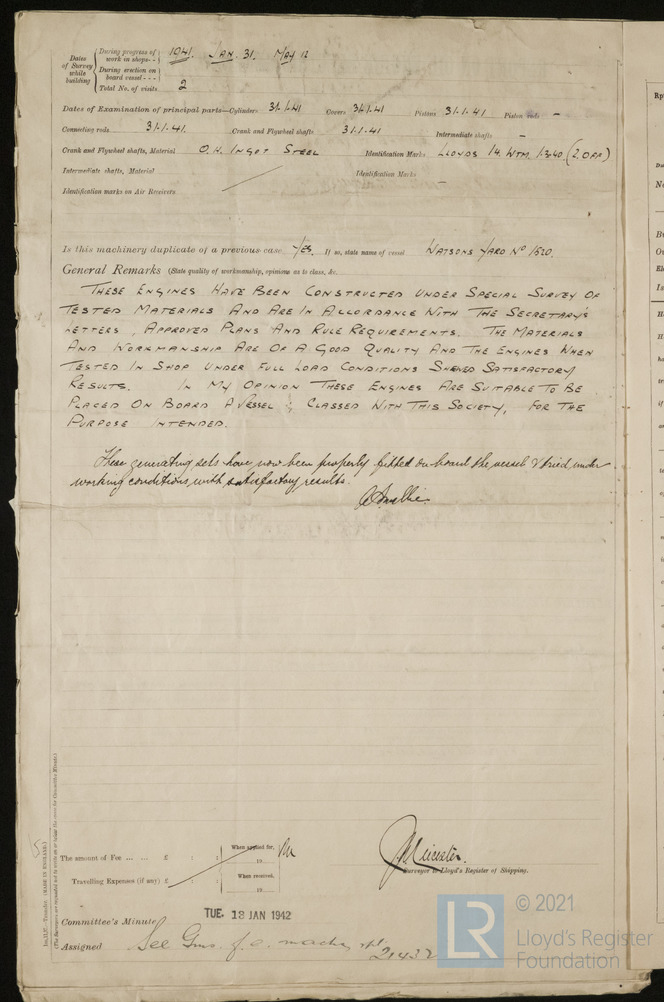 Dates of Survey while building
During progress of work in shops - - 1941. JAN. 31. MAY 12
During erection on board vessel - - -
Total No. of visits 2
Dates of Examination of principal parts—Cylinders 31.1.41 Covers 31.1.41 Pistons 31.1.41 Piston rods -
Connecting rods 31.1.41. Crank and Flywheel shafts 31.1.41 Intermediate shafts -
Crank and Flywheel shafts, Material O.H. INGOT STEEL Identification Marks LLOYDS 14. WTM. 1.3.40. (2.OFF)
Intermediate shafts, Material Identification Marks -
Identification marks on Air Receivers
Is this machinery duplicate of a previous case YES. If so, state name of vessel WATSONS YARD No 1520.
General Remarks (State quality of workmanship, opinions as to class, &c.
THESE ENGINES HAVE BEEN CONSTRUCTED UNDER SPECIAL SURVEY OF
TESTED MATERIALS AND ARE IN ACCORDANCE WITH THE SECRETARY'S
LETTERS, APPROVED PLANS AND RULE REQUIREMENTS. THE MATERIALS
AND WORKMANSHIP ARE OF A GOOD QUALITY AND THE ENGINES WHEN
TESTED IN SHOP UNDER FULL LOAD CONDITIONS SHEWED SATISFACTORY
RESULTS. IN MY OPINION THESE ENGINES ARE SUITABLE TO BE
PLACED ON BOARD A VESSEL CLASSED WITH THIS SOCIETY, FOR THE
PURPOSE INTENDED.
These generating sets have now been properly fitted on board the vessel & tried under
working conditions, with satisfactory results.
The amount of Fee ... ... £ : : When applied for, 19
Travelling Expenses (if any) £ : : When received, 19
Surveyor to Lloyd's Register of Shipping.
Committee's Minute TUE. 13 JAN 1942
Assigned See Gms. f.e. machy rpt. 21432
(MADE IN ENGLAND.)
LR
© 2021
Lloyd's Register
Foundation